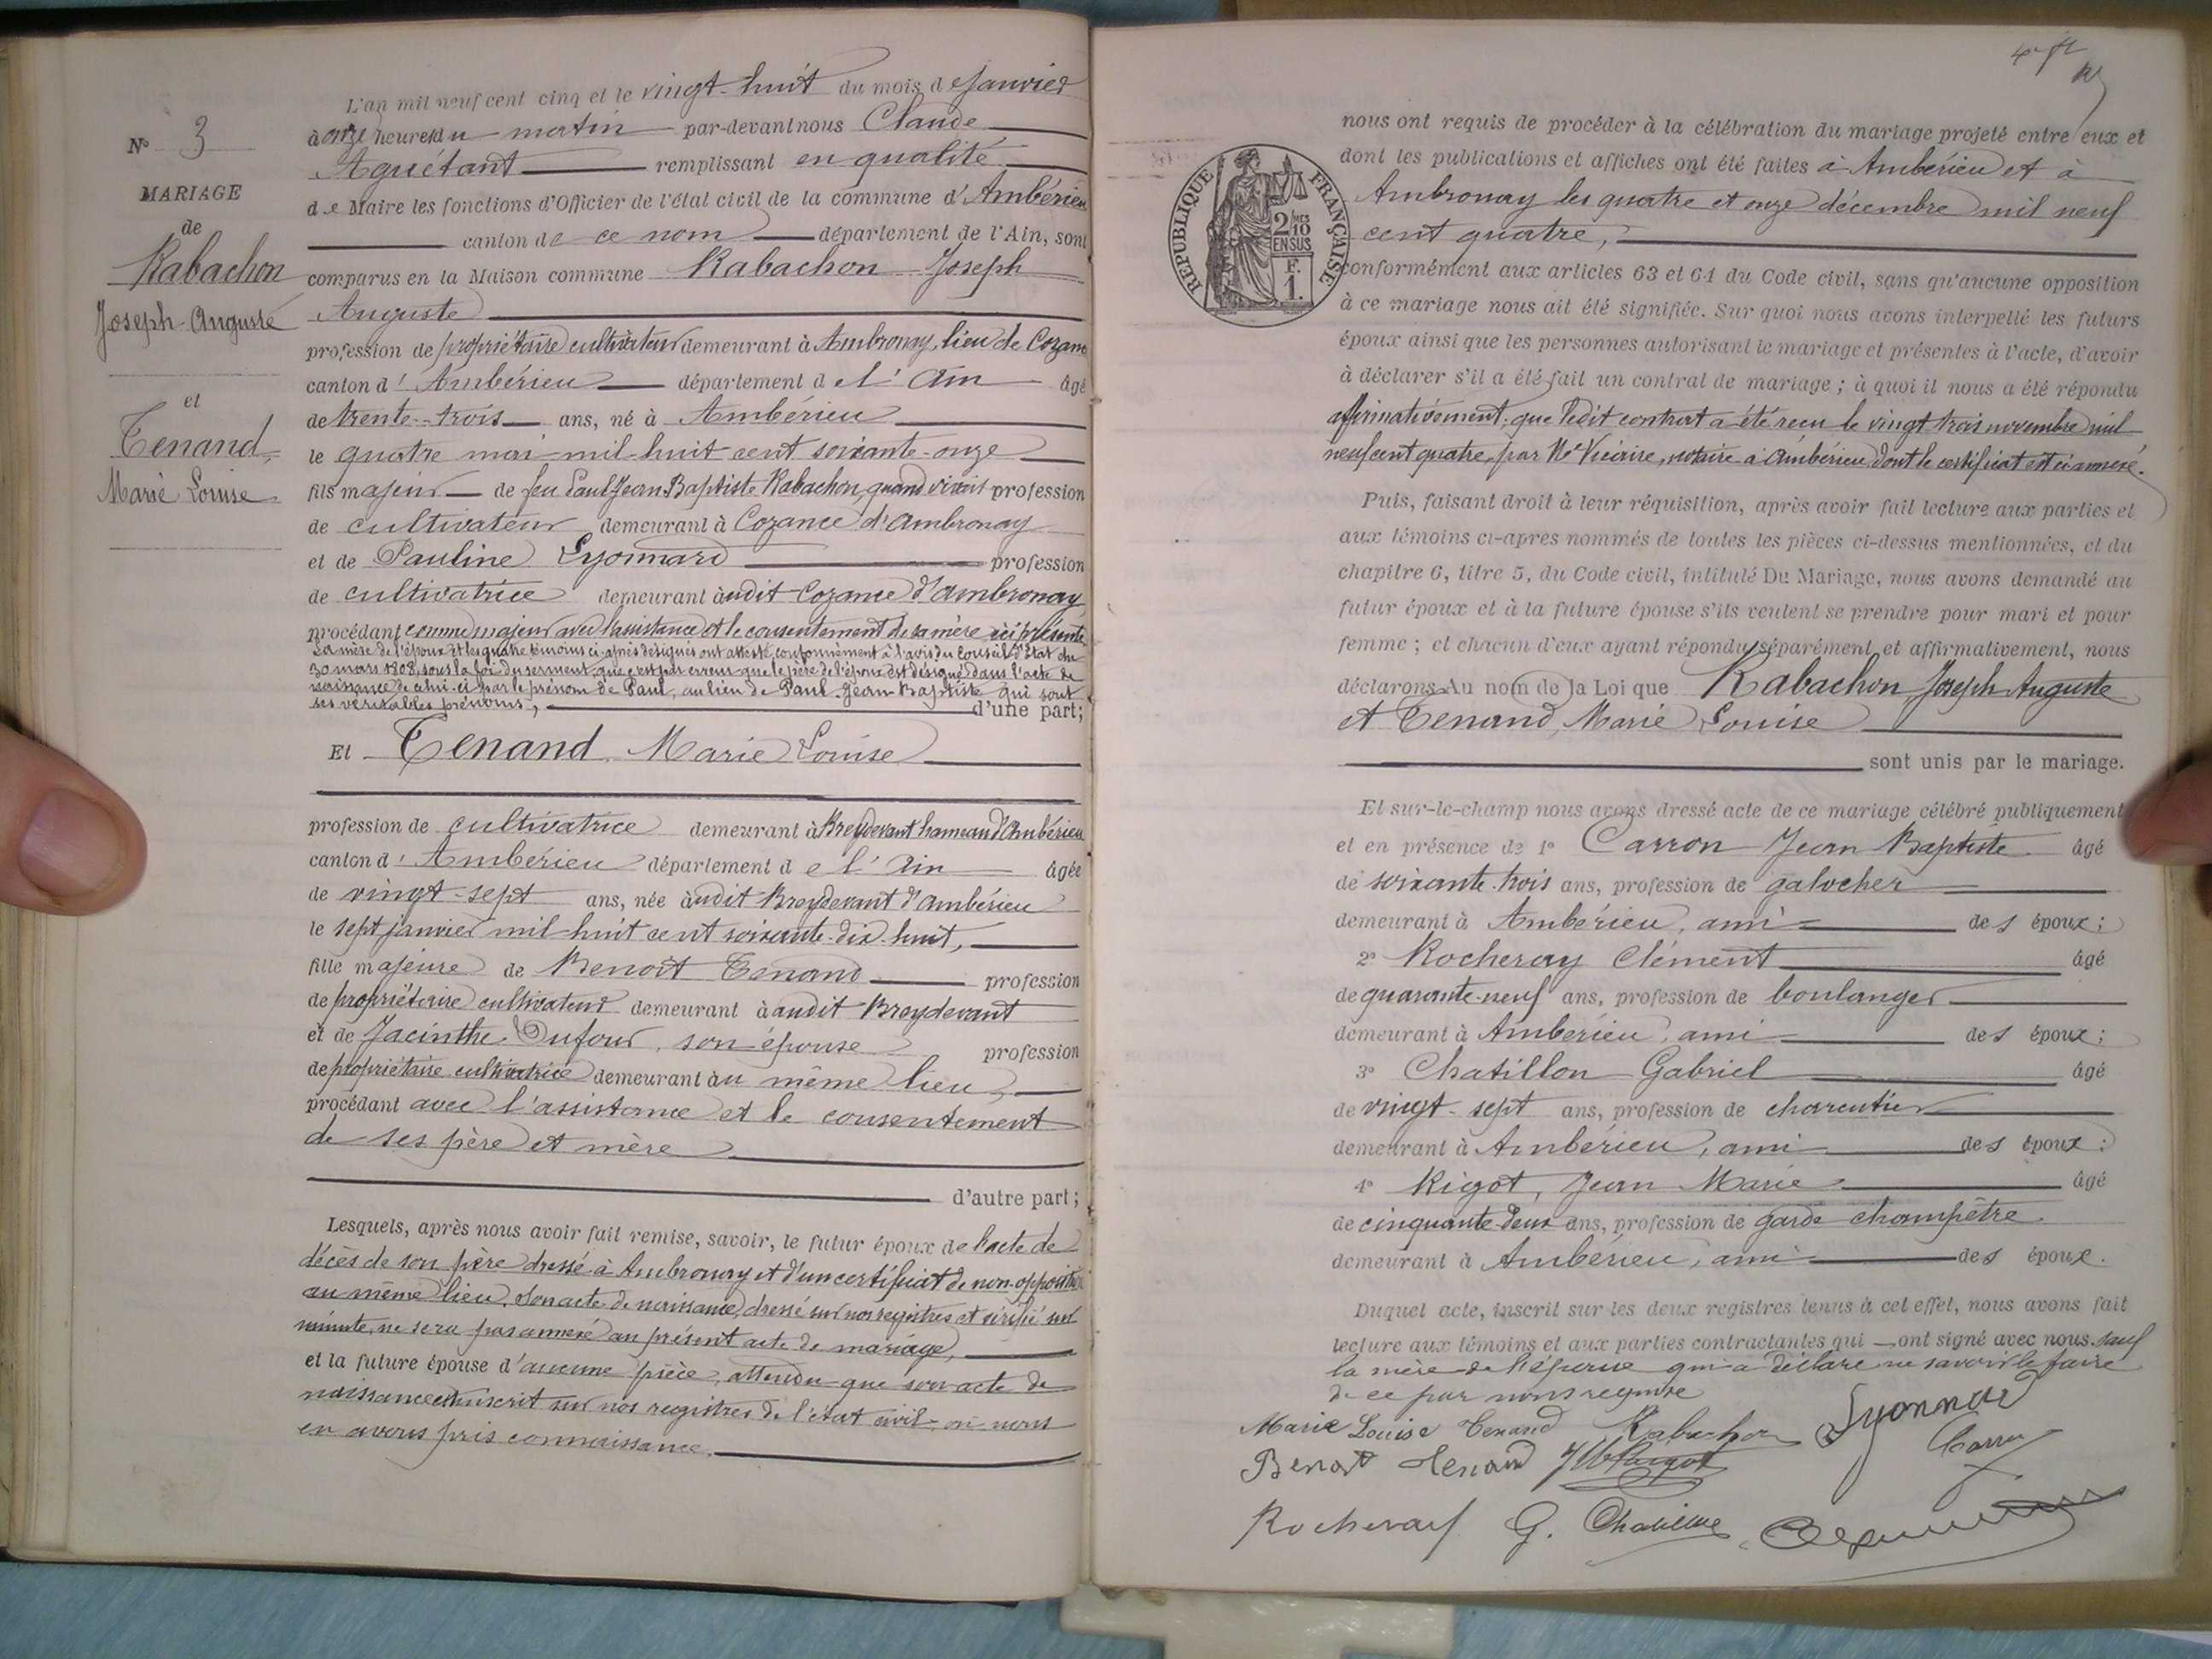 N° 3
MARIAGE
de
Rabachon
Joseph-Auguste
et
Tenand,
Marie Louise
L'an mil neuf cent cinq et le vingt-huit du mois de Janvier
à onze heures du matin par-devant nous Claude
Aguétant remplissant en qualité
de Maire les fonctions d'Officier de l'état civil de la commune d'Ambérieu
canton de ce nom département de l'Ain, sont
comparus en la Maison commune Rabachon Joseph
Auguste
profession de propriétaire cultivateur demeurant à Ambronay, lieu de Cozance
canton d'Ambérieu département de l'Ain âgé
de trente-trois ans, né à Ambérieu
le quatre mai mil-huit-cent soixante-onze
fils majeur de feu Paul Jean Baptiste Rabachon, quand vivait profession
de cultivateur demeurant à Cozance d'Ambronay
et de Pauline Lyonnard profession
de cultivatrice demeurant audit Cozance d'Ambronay
procédant comme majeur avec l'assistance et le consentement de sa mère ici présente
La mère de l'époux et les quatre témoins ci-après désignés ont attesté, conformément à l'avis du Conseil d'État du
30 mars 1808, sous la foi du serment, que c'est par erreur que le père de l'époux est désigné dans l'acte de
naissance de celui-ci par le prénom de Paul, au lieu de Paul-Jean-Baptiste qui sont
ses véritables prénoms, d'une part;
Et Tenand Marie Louise
profession de cultivatrice demeurant à Breydevant hameau d'Ambérieu
canton d'Ambérieu département de l'Ain âgée
de vingt-sept ans, née audit Breydevant d'Ambérieu
le sept janvier mil-huit cent soixante-dix-huit,
fille majeure de Benoît Tenand profession
de propriétaire cultivateur demeurant à audit Breydevant
et de Jacinthe Dufour, son épouse profession
de propriétaire cultivatrice demeurant au même lieu,
procédant avec l'assistance et le consentement
de ses père et mère
d'autre part;
Lesquels, après nous avoir fait remise, savoir, le futur époux de l'acte de
décès de son père dressé à Ambronay et d'un certificat de non-opposition
au même lieu. Son acte de naissance, dressé sur nos registres et vérifié sur
minute, ne sera pas annexé au présent acte de mariage,
et la future épouse d'aucune pièce, attendu que son acte de
naissance est inscrit sur nos registres de l'état civil où nous
en avons pris connaissance.
RÉPUBLIQUE FRANÇAISE
2/10
EN SUS
F.
1.
nous ont requis de procéder à la célébration du mariage projeté entre eux et
dont les publications et affiches ont été faites à Ambérieu et à
Ambronay les quatre et onze décembre mil neuf
cent quatre,
conformément aux articles 63 et 64 du Code civil, sans qu'aucune opposition
à ce mariage nous ait été signifiée. Sur quoi nous avons interpellé les futurs
époux ainsi que les personnes autorisant le mariage et présentes à l'acte, d'avoir
à déclarer s'il a été fait un contrat de mariage ; à quoi il nous a été répondu
affirmativement; que ledit contrat a été reçu le vingt trois novembre mil
neuf cent quatre, par Me Vicaire, notaire à Ambérieu dont le certificat est ci annexé.
Puis, faisant droit à leur réquisition, après avoir fait lecture aux parties et
aux témoins ci-après nommés de toutes les pièces ci-dessus mentionnées, et du
chapitre 6, titre 5, du Code civil, intitulé Du Mariage, nous avons demandé au
futur époux et à la future épouse s'ils veulent se prendre pour mari et pour
femme ; et chacun d'eux ayant répondu séparément et affirmativement, nous
déclarons Au nom de la Loi que Rabachon Joseph Auguste
et Tenand, Marie Louise
sont unis par le mariage.
Et sur-le-champ nous avons dressé acte de ce mariage célébré publiquement
et en présence de 1° Carron Jean Baptiste âgé
de soixante-trois ans, profession de galocher
demeurant à Ambérieu, ami des époux;
2° Rocheray Clément âgé
de quarante-neuf ans, profession de boulanger
demeurant à Ambérieu, ami des époux;
3° Chatillon Gabriel âgé
de vingt-sept ans, profession de charcutier
demeurant à Ambérieu, ami des époux;
4° Rigot, Jean Marie âgé
de cinquante-deux ans, profession de garde champêtre
demeurant à Ambérieu, ami des époux.
Duquel acte, inscrit sur les deux registres tenus à cet effet, nous avons fait
lecture aux témoins et aux parties contractantes qui ont signé avec nous, sauf
la mère de l'épouse qui a déclaré ne savoir le faire
de ce par nous requise
Marie Louise Tenand Rabachon Lyonnard
Benoit Tenand Rigot Carron
Rocheray G. Chatillon